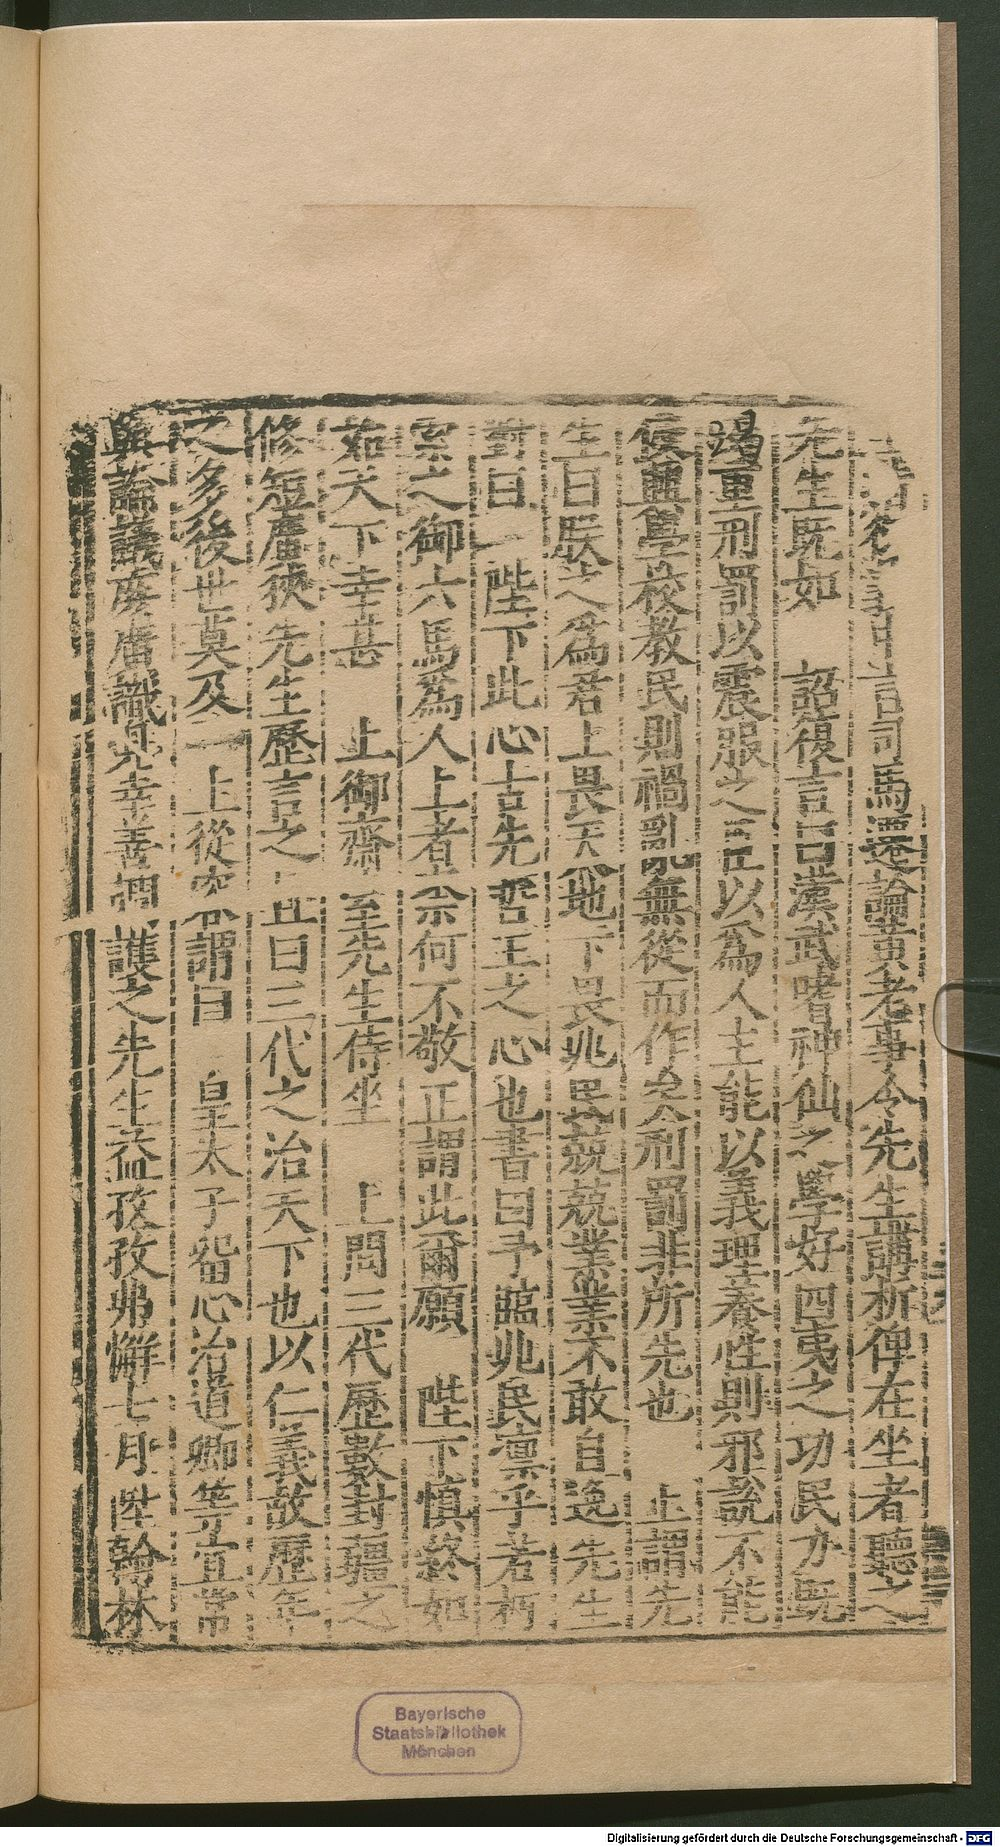 言司馬遷論黃老事令先生講析俾在坐者聽之
先生既如 詔復言曰漢武嗜神仙之學好四夷之功民力既
竭重刑罰以震服之臣以爲人主能以義理養性則邪說不能
侵興學校教民則禍亂無從而作矣刑罰非所先也 上謂先
生曰朕之爲君上畏天地下畏兆民兢兢業業不敢自逸先生
對曰 陛下此心古先哲王之心也書曰予臨兆民凜乎若朽
索之御六馬爲人上者奈何不敬正謂此爾願 陛下慎終如
茹天下幸甚 上御齋 至先生侍坐 上問三代歷數封疆之
修短廣狹先生歷言之 且曰三代之治天下也以仁義故歷年
之多後世莫及 上從容謂曰 皇太子留心治道卿等宜常
與論議庶廣識見幸善調護之先生益孜孜弗懈七月陞翰林
Bayerische
Staatsbibliothek
München
Digitalisierung gefördert durch die Deutsche Forschungsgemeinschaft - DFG